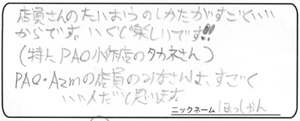 店員さんのたいおうのしかたがすごくいい
からです。いくじ楽しいです!!
(特にPAO小作店のタカネさん)
PAO・Azmの店員のみなさんは、すごく
いい人だと思います
ニックネーム ほっしゃん